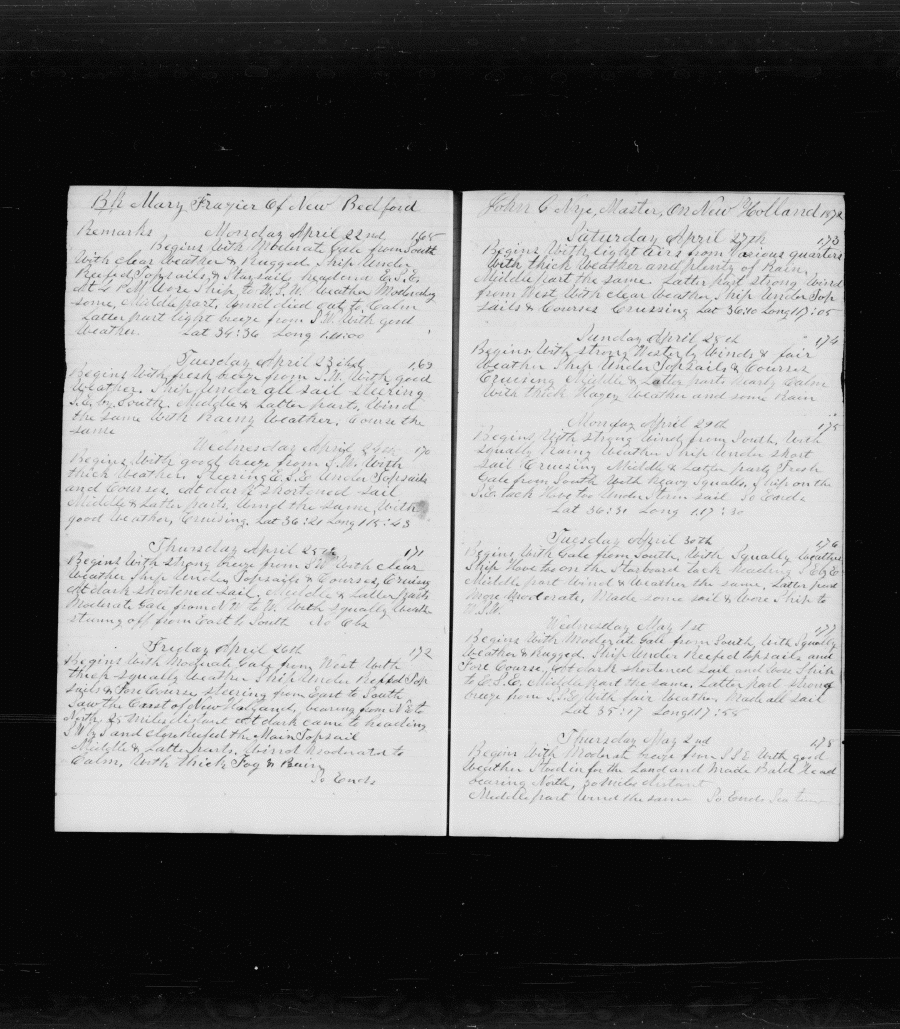 Bk Mary Frazier Of New Bedford
Remarks Monday April 22nd 168
Begins With Moderate Gale from South
With clear weather & Rugged Ship Under
Reefed Topsails, & Staysail heading E.S.E.
At 4 P.M. Wore Ship to W.S.W. Weather Moderating
some, Middle part, Wind died out to Calm
Latter part light breeze from S.W. With good
Weather. Lat 36:36 Long
Tuesday April 23 169
Begins With fresh breeze from S.W. With good
Weather. Ship Under all sail Steering
S.E. by South. Middle & Latter parts. Wind
the same With Rainy Weather. Course the
same
Wednesday April 24th 170
Begins With good breeze from S.W. With
thick Weather. Steering E.S.E. Under Topsails
and Courses. At dark shortened sail
Middle & Latter parts. Wind the same With
good Weather, Cruising. Lat 36:21 Long 115:43
Thursday April 25th 171
Begins With strong breeze from SW With clear
Weather Ship Under Topsails & Courses, Cruising
At dark shortened sail. Middle & Latter parts
Moderate Gale from N.W. to W. With squally Weath
sturing off from East to South No Obs
Friday April 26th 172
Begins With Moderate Gale from West With
thick squally Weather Ship Under Reefed Top
sails & Fore Course steering from East to South
Saw the Coast of New Holland, bearing from N.E. to
North, 25 Miles distant At dark came to heading
S.W. by S and close Reefed the Main Topsail
Middle & Latter parts. Wind Moderated to
Calm, With thick Fog & Rain
So Ends
John C Nye, Master, On New Holland 1872
Saturday April 27th 173
Begins With light Airs from Various quarters
With thick Weather and plenty of Rain,
Middle part the same. Latter part strong Wind
from West With clear weather, Ship Under Top
sails & Courses Cruising Lat 36:10 Long 117:05
Sunday April 28th 174
Begins With strong Westerly Winds & fair
Weather Ship Under Topsails & Courses
Cruising Middle & Latter parts Nearly Calm
With thick Hazey Weather and some rain
Monday April 29th 175
Begins With strong Wind from South, With
squally Rainy Weather Ship Under short
sail Cruising Middle & Latter parts Fresh
Gale from South With heavy Squalls. Ship on the
S.E. tack Hove too Under Storm sail So Ends
Lat 36:31 Long 117:30
Tuesday April 30th 176
Begins With Gale from South, With Squally Weather
Ship Hove too on the Starboard tack heading S.E. by E
Middle part Wind & Weather the same. Latter part
More Moderate, Made some sail & Wore Ship to
W.S.W.
Wednesday May 1st 177
Begins With Moderate Gale from South, With Squally
Weather & Rugged. Ship Under Reefed topsails and
Fore Course. At dark shortened sail and Wore Ship
to E.S.E. Middle part the same. Latter part strong
breeze from S.S.E. With fair Weather. Made all sail
Lat 35:17 Long 117:55
Thursday May 2nd 178
Begins With Moderate breeze from S.S.E. With good
Weather Stood in for the Land and Made Bald Head
bearing North, 30 Miles distant
Middle part Wind the same So Ends Sea time